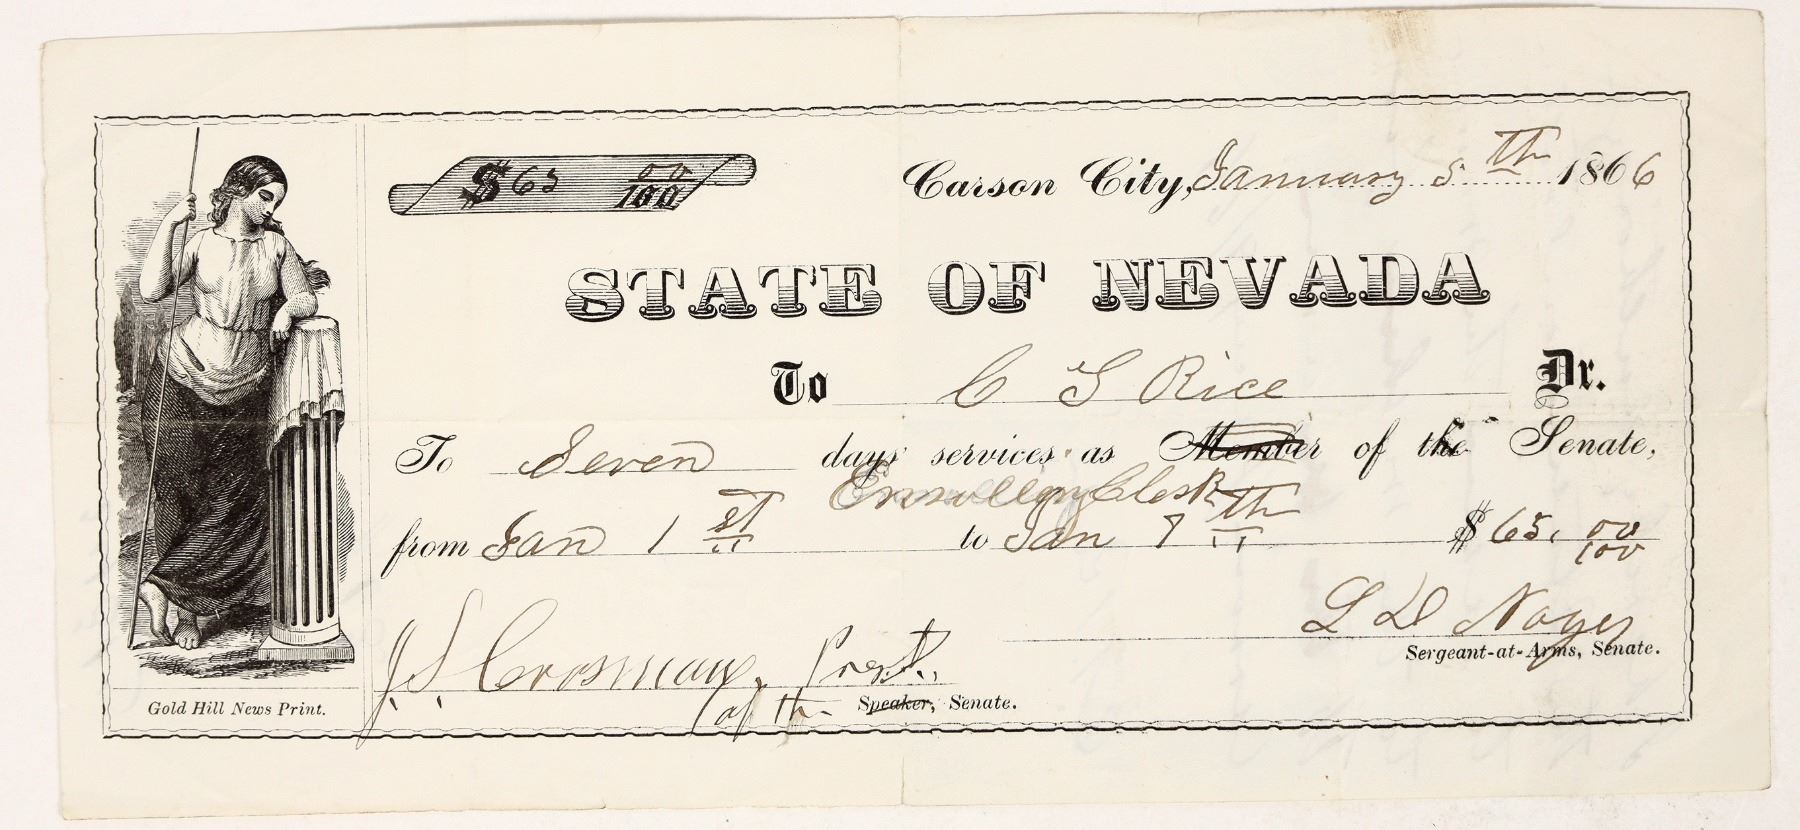 $ 65 00/100
Carson City, January 5th 1866
STATE OF NEVADA
To C G Rice Dr.
To Seven days' services as Member of the Senate,
Enrolling Clerk
from Jan 1st to Jan 7th $65. 00/100
L D Noyes
Sergeant-at-Arms, Senate.
J. S. Crosman, Prest.,
of the Speaker, Senate.
Gold Hill News Print.